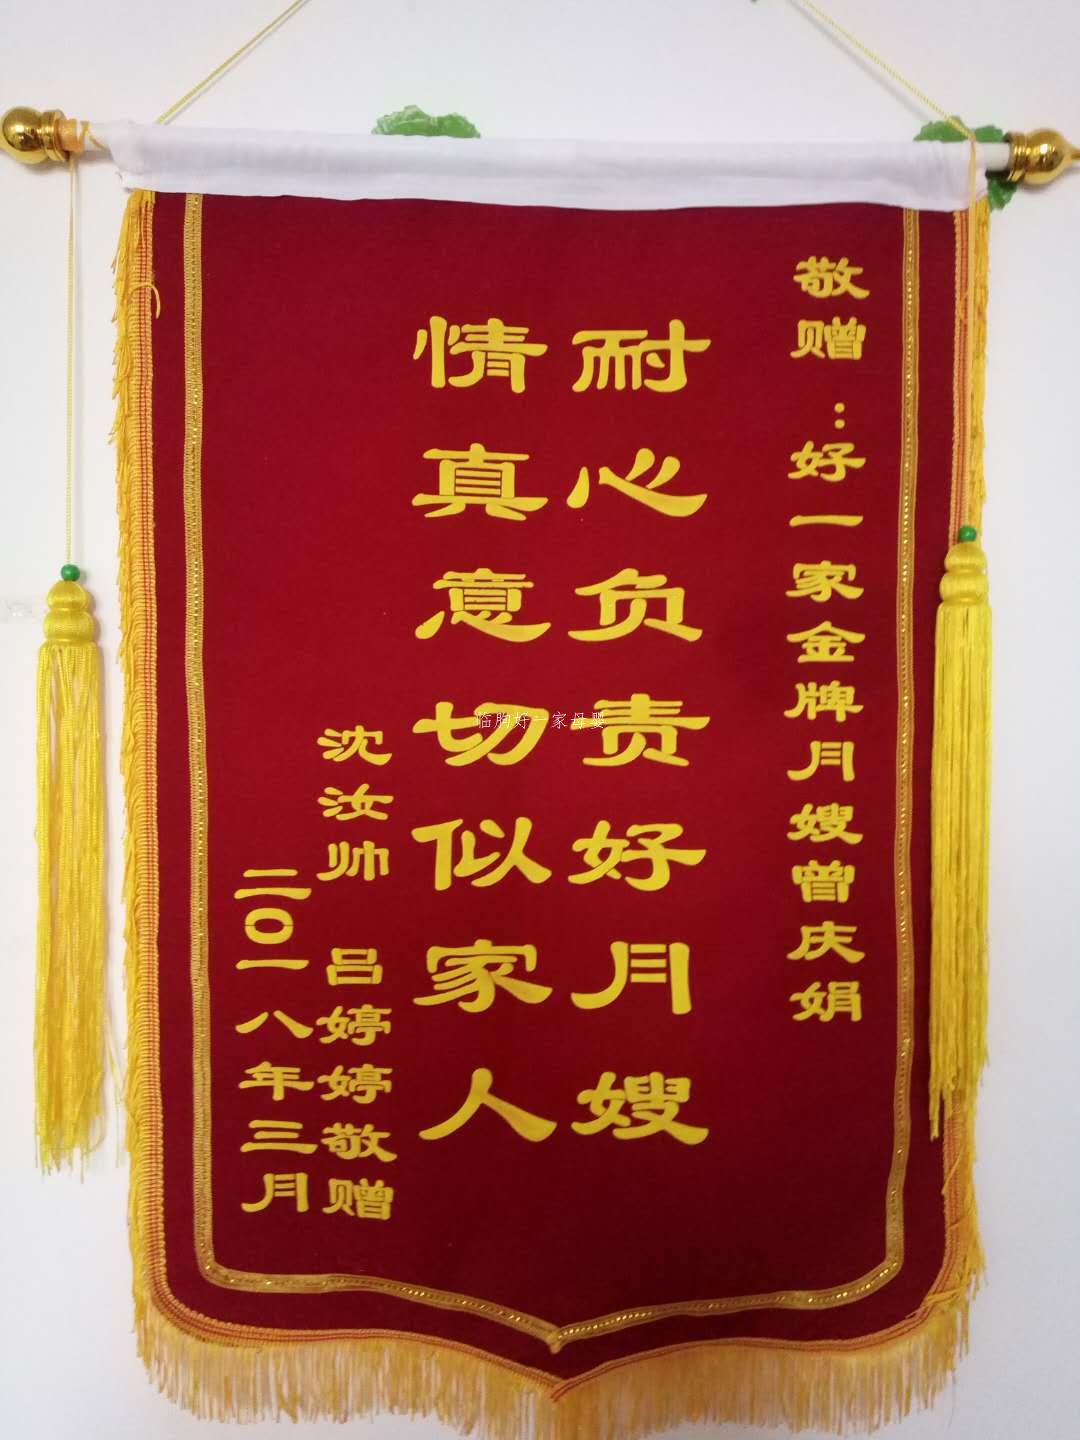 敬赠：好一家金牌月嫂曾庆娟
耐心负责好月嫂
情真意切似家人
沈汝帅 吕婷婷敬赠
二〇一八年三月
临朐好一家母婴